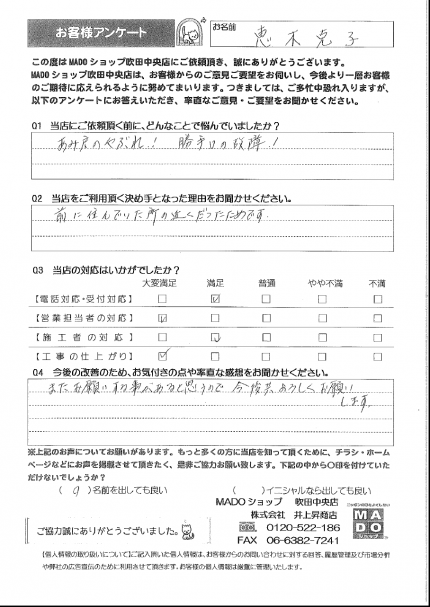 お客様アンケート
お名前
恵木克子
この度はMADOショップ吹田中央店にご依頼頂き、誠にありがとうございます。
MADOショップ吹田中央店は、お客様からのご意見ご要望をお伺いし、今後より一層お客様
のご期待に応えられるように努めてまいります。つきましては、ご多忙中恐れ入りますが、
以下のアンケートにお答えいただき、率直なご意見・ご要望をお聞かせください。
Q1 当店にご依頼頂く前に、どんなことで悩んでいましたか？
あみ戸のやぶれ！ 勝手口の故障！
Q2 当店をご利用頂く決め手となった理由をお聞かせください。
前に住んでいた所の近くだったためです.
Q3 当店の対応はいかがでしたか？
大変満足 満足 普通 やや不満 不満
【電話対応・受付対応】
【営業担当者の対応】
【施工者の対応】
【工事の仕上がり】
Q4 今後の改善のため、お気付きの点や率直な感想をお聞かせください。
またお願いする事があると思うので 今後共よろしくお願い
します.
※上記のお声についてお願いがあります。もっと多くの方に当店を知って頂くために、チラシ・ホーム
ページなどにお声を掲載させて頂きたく、是非ご協力お願い致します。下記の中から〇印を付けていた
だけないでしょうか？
( )名前を出しても良い ( )イニシャルなら出しても良い
MADOショップ 吹田中央店
株式会社 井上昇商店
0120-522-186
FAX 06-6382-7241
MADO
ショップ
ご協力誠にありがとうございました。
【個人情報の取り扱いについて】ご記入頂いた個人情報は、お客様からのお問い合わせに対する回答、履歴管理及び市場分析
や弊社の広告宣伝のために利用させて頂きます。お客様の個人情報は厳重に管理いたします。